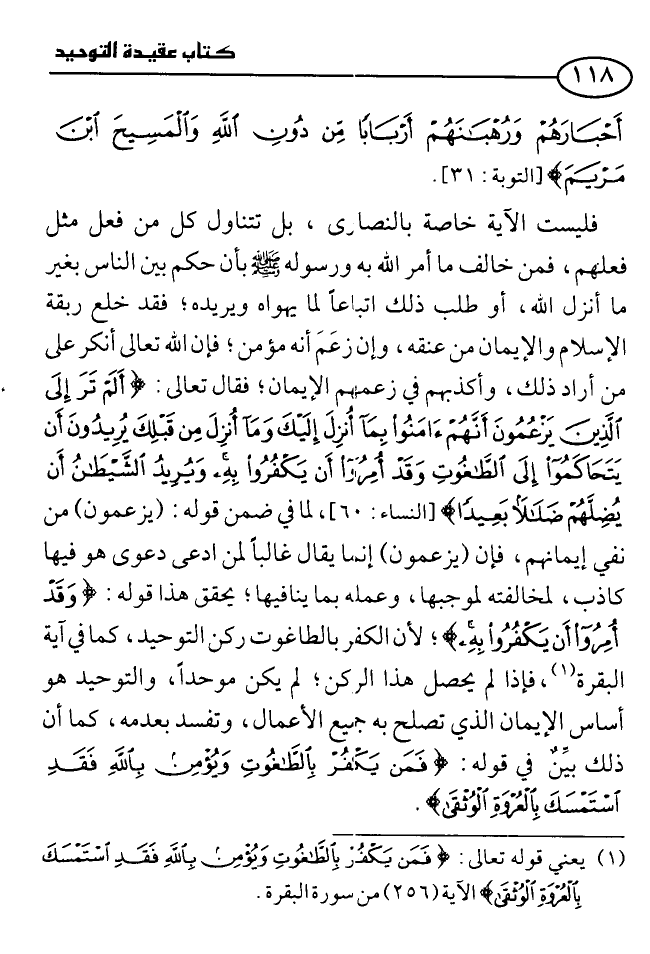 كتاب عقيدة التوحيد
١١٨
أَحْبَارَهُمْ وَرُهْبَـٰنَهُمْ أَرْبَابًا مِّن دُونِ ٱللَّهِ وَٱلْمَسِيحَ ٱبْنَ
مَرْيَمَ﴾ [التوبة : ٣١].
فليست الآية خاصة بالنصارى ، بل تتناول كل من فعل مثل
فعلهم ، فمن خالف ما أمر الله به ورسوله ﷺ بأن حكم بين الناس بغير
ما أنزل الله، أو طلب ذلك اتباعاً لما يهواه ويريده ؛ فقد خلع ربقة
الإسلام والإيمان من عنقه ، وإن زعَمَ أنه مؤمن ؛ فإن الله تعالى أنكر على
من أراد ذلك ، وأكذبهم في زعمهم الإيمان ؛ فقال تعالى : ﴿ أَلَمْ تَرَ إِلَى
ٱلَّذِينَ يَزْعُمُونَ أَنَّهُمْ ءَامَنُوا۟ بِمَآ أُنزِلَ إِلَيْكَ وَمَآ أُنزِلَ مِن قَبْلِكَ يُرِيدُونَ أَن
يَتَحَاكَمُوٓا۟ إِلَى ٱلطَّـٰغُوتِ وَقَدْ أُمِرُوٓا۟ أَن يَكْفُرُوا۟ بِهِۦ وَيُرِيدُ ٱلشَّيْطَـٰنُ أَن
يُضِلَّهُمْ ضَلَـٰلًا بَعِيدًا﴾ [النساء : ٦٠]، لما في ضمن قوله : (يزعمون) من
نفي إيمانهم ، فإن (يزعمون) إنما يقال غالباً لمن ادعى دعوى هو فيها
كاذب ، لمخالفته لموجبها ، وعمله بما ينافيها ؛ يحقق هذا قوله : ﴿ وَقَدْ
أُمِرُوٓا۟ أَن يَكْفُرُوا۟ بِهِۦ﴾ ؛ لأن الكفر بالطاغوت ركن التوحيد ، كما في آية
البقرة(١) ، فإذا لم يحصل هذا الركن ؛ لم يكن موحداً ، والتوحيد هو
أساس الإيمان الذي تصلح به جميع الأعمال ، وتفسد بعدمه ، كما أن
ذلك بيِّنٌ في قوله : ﴿ فَمَن يَكْفُرْ بِٱلطَّـٰغُوتِ وَيُؤْمِنۢ بِٱللَّهِ فَقَدِ
ٱسْتَمْسَكَ بِٱلْعُرْوَةِ ٱلْوُثْقَىٰ﴾ .
(١) يعني قوله تعالى : ﴿ فَمَن يَكْفُرْ بِٱلطَّـٰغُوتِ وَيُؤْمِنۢ بِٱللَّهِ فَقَدِ ٱسْتَمْسَكَ
بِٱلْعُرْوَةِ ٱلْوُثْقَىٰ﴾ الآية (٢٥٦) من سورة البقرة .